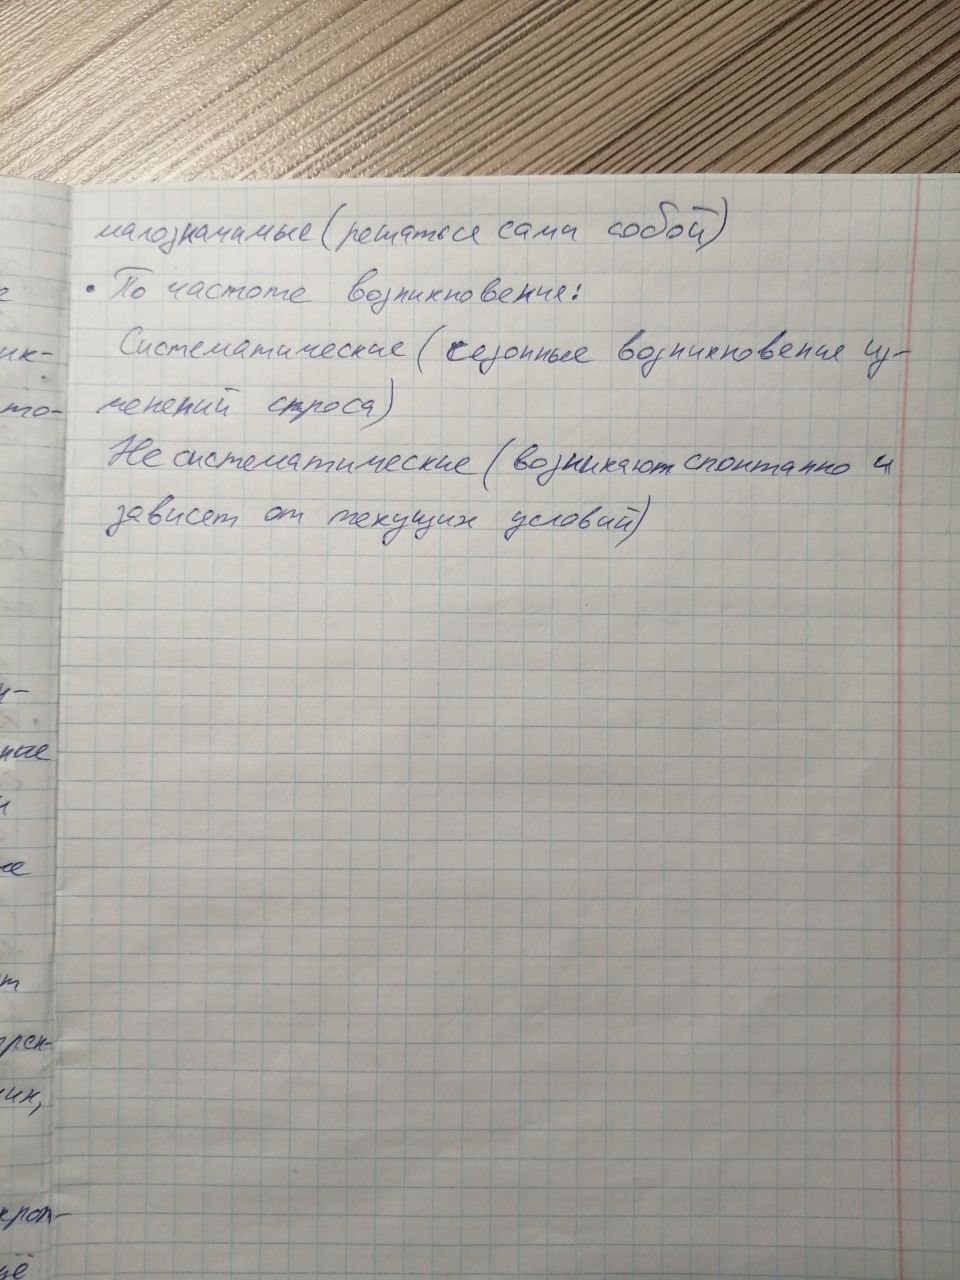 малозначимые (решаться сами собой)
• По частоте возникновения:
Систематические (сезонные возникновения из-
менений спроса)
Не систематические (возникают спонтанно и
зависет от текущих условий)